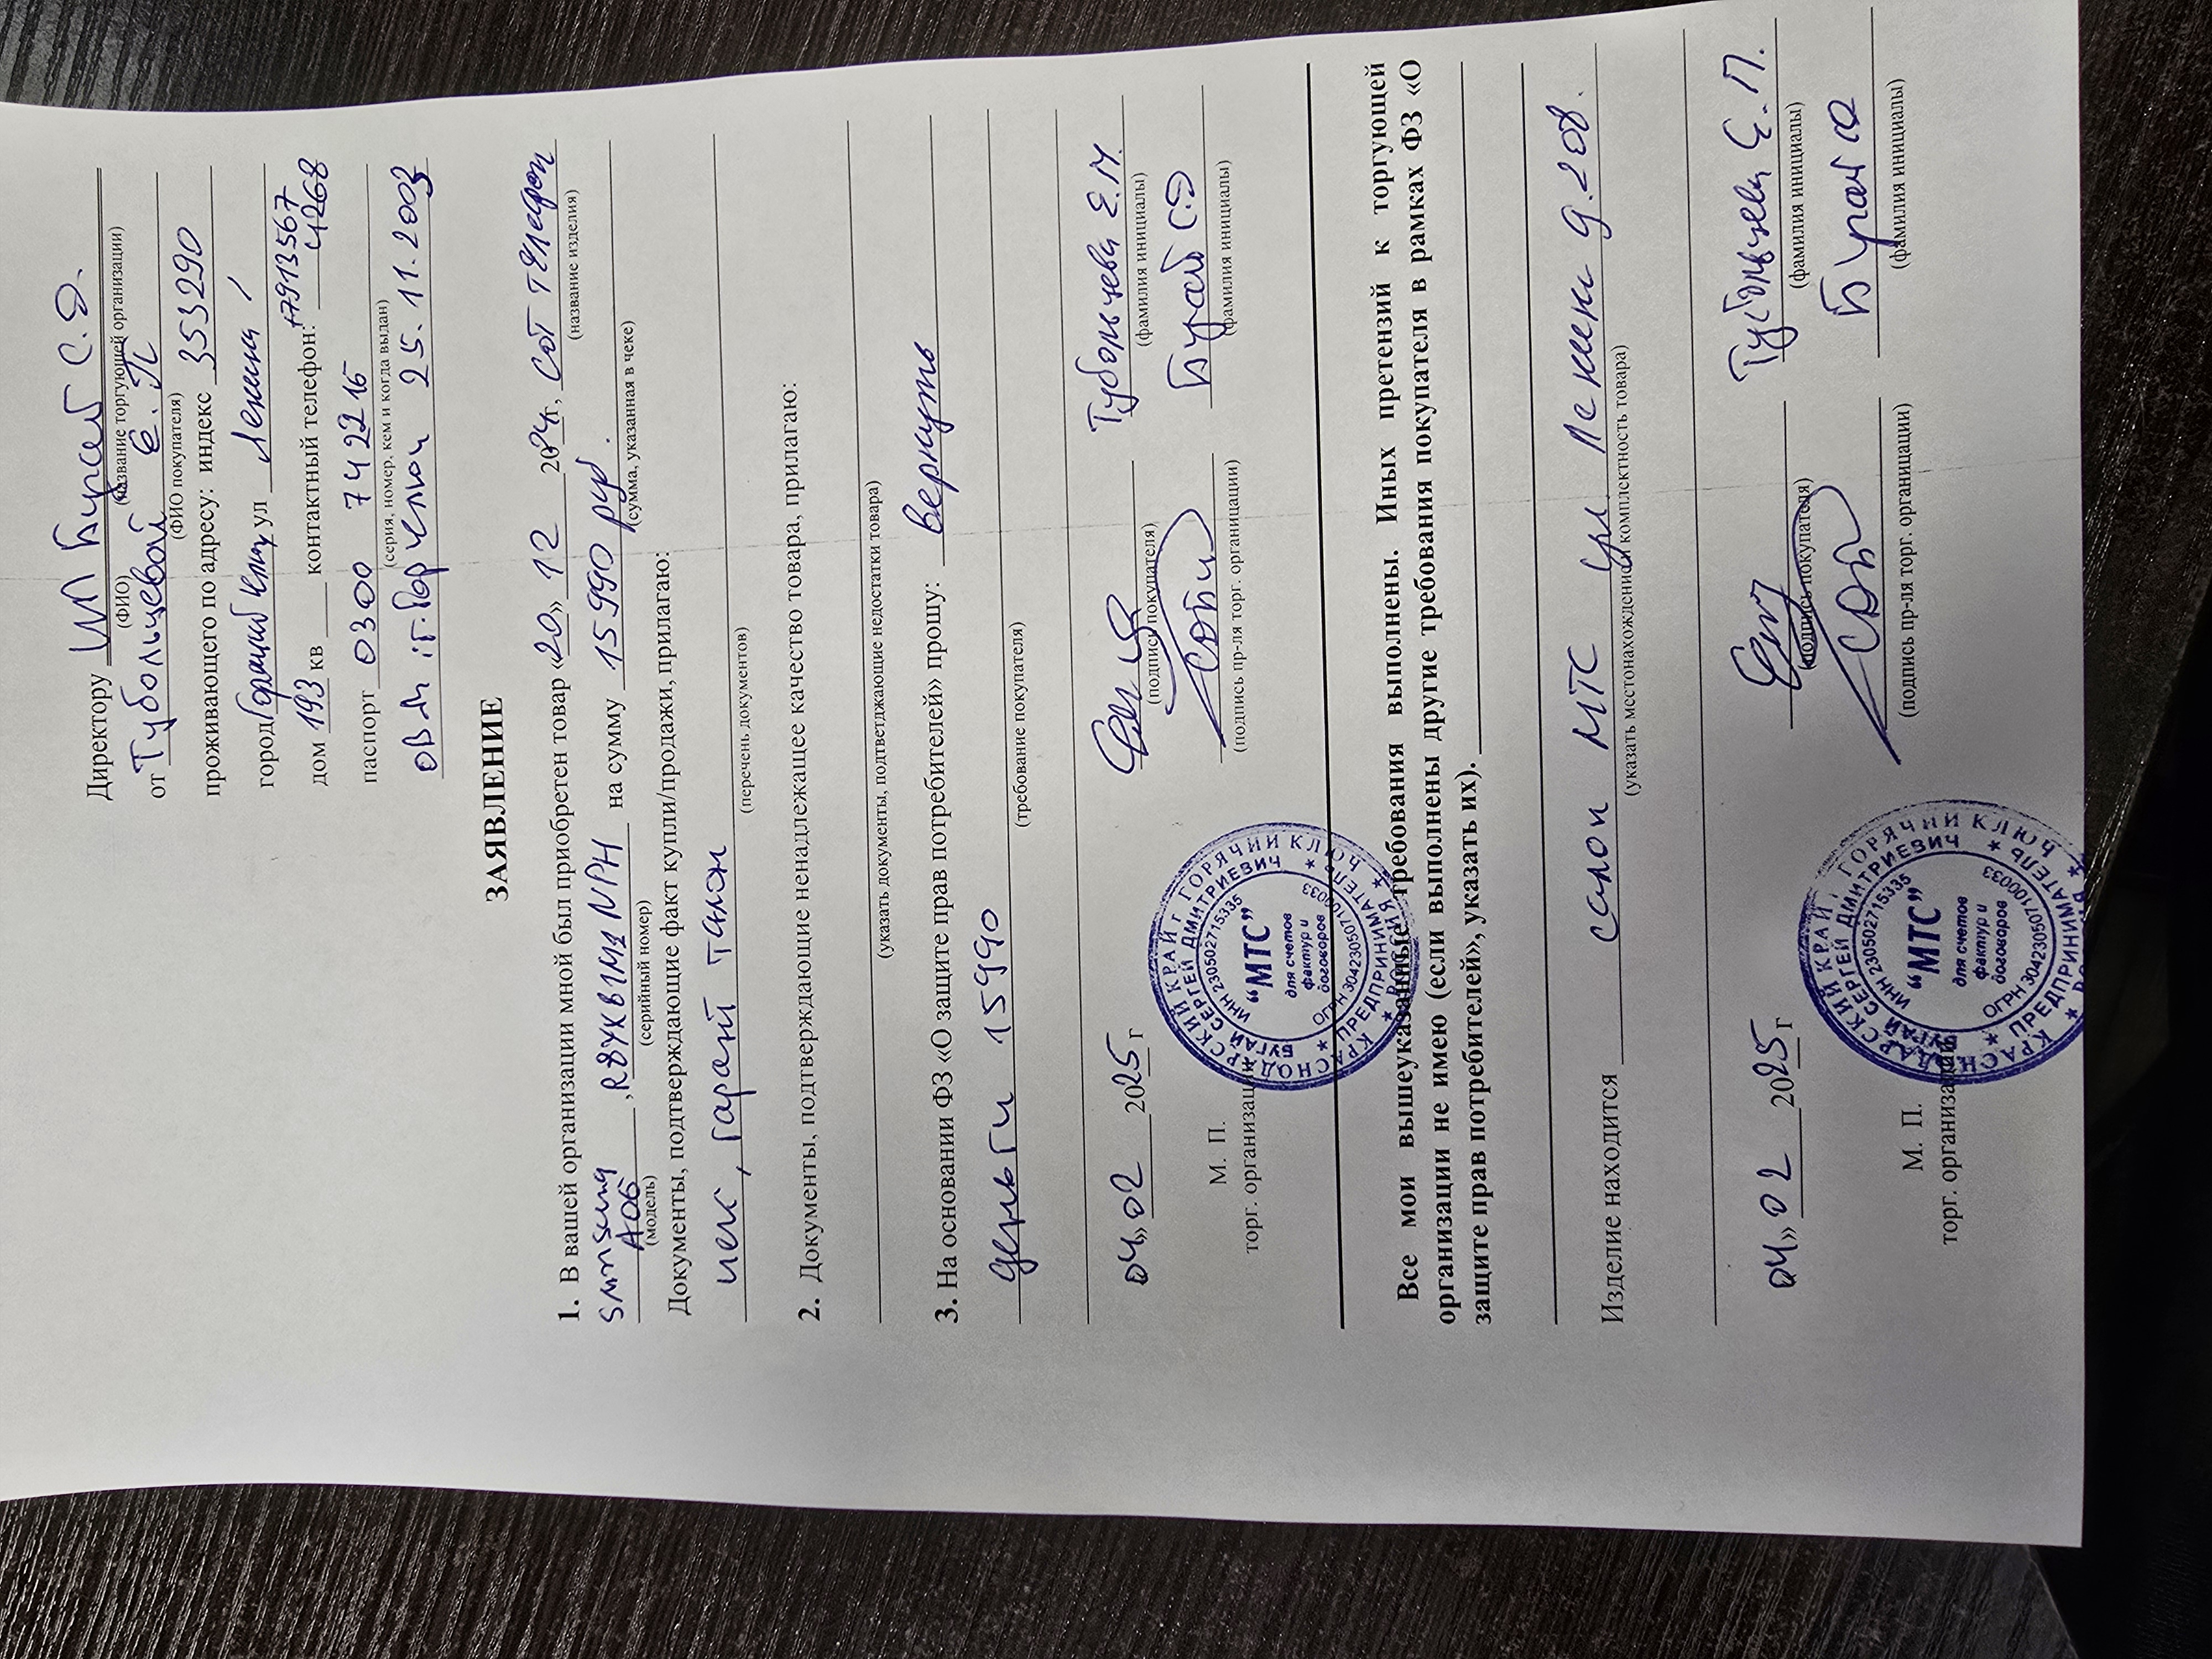 Директору ИП Бугай С.Д.
(ФИО) (название торгующей организации)
от Губольцевой Е. П
(ФИО покупателя)
проживающего по адресу: индекс 353290
город Горячий Ключ ул Ленина
дом 193 кв контактный телефон: +7913567
4268
паспорт 0300 742215
(серия, номер, кем и когда выдан)
25.11.2003
ЗАЯВЛЕНИЕ
1. В вашей организации мной был приобретен товар «20» 12 2024г, сот телефон
(название изделия)
Samsung
A06 , R8YXB1M1NPH на сумму 15990 руб.
(модель) (серийный номер) (сумма, указанная в чеке)
Документы, подтверждающие факт купли/продажи, прилагаю:
чек, гарант талон
(перечень документов)
2. Документы, подтверждающие ненадлежащее качество товара, прилагаю:
(указать документы, подтверждающие недостатки товара)
3. На основании ФЗ «О защите прав потребителей» прошу: вернуть
деньги 15990
(требование покупателя)
04» 02 2025 г
(подпись покупателя) (фамилия инициалы)
М. П. Бугай С.Д
торг. организации (подпись пр-ля торг. организации) (фамилия инициалы)
КРАСНОДАРСКИЙ КРАЙ Г ГОРЯЧИЙ КЛЮЧ
БУГАЙ СЕРГЕЙ ДМИТРИЕВИЧ
ПРЕДПРИНИМАТЕЛЬ
РОССИЯ
ИНН 230502715335
ОГРН 304230507100033
"МТС"
для счетов
фактур и
договоров
Все мои вышеуказанные требования выполнены. Иных претензий к торгующей
организации не имею (если выполнены другие требования покупателя в рамках ФЗ «О
защите прав потребителей», указать их).
Изделие находится салон МТС ул Ленина д.208.
(указать местонахождение и комплектность товара)
04» 02 2025 г
(подпись покупателя) (фамилия инициалы)
М. П. Бугай
торг. организации (подпись пр-ля торг. организации) (фамилия инициалы)
КРАСНОДАРСКИЙ КРАЙ Г ГОРЯЧИЙ КЛЮЧ
БУГАЙ СЕРГЕЙ ДМИТРИЕВИЧ
ПРЕДПРИНИМАТЕЛЬ
ИНН 230502715335
ОГРН 304230507100033
"МТС"
для счетов
фактур и
договоров